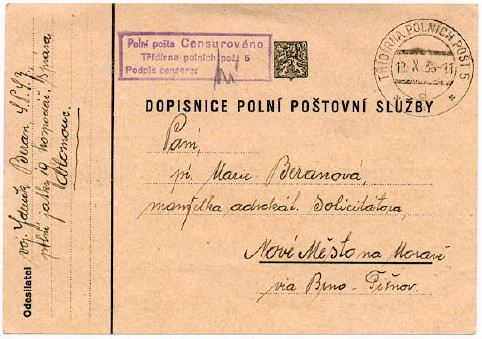 Polní pošta Censurováno
Třídírna polních pošt 5
Podpis censora:
TŘÍDÍRNA POLNÍCH POŠT 5
12 X 38 - 11
d
DOPISNICE POLNÍ POŠTOVNÍ SLUŽBY
Paní,
pí. Marie Beranová,
manželka advokát. solicitatora,
Nové Město na Moravě
via Brno - Tišnov.
Odesílatel
voj. Zdeněk Beran
polní jatky 19 hospodář. správa
Olomouc.